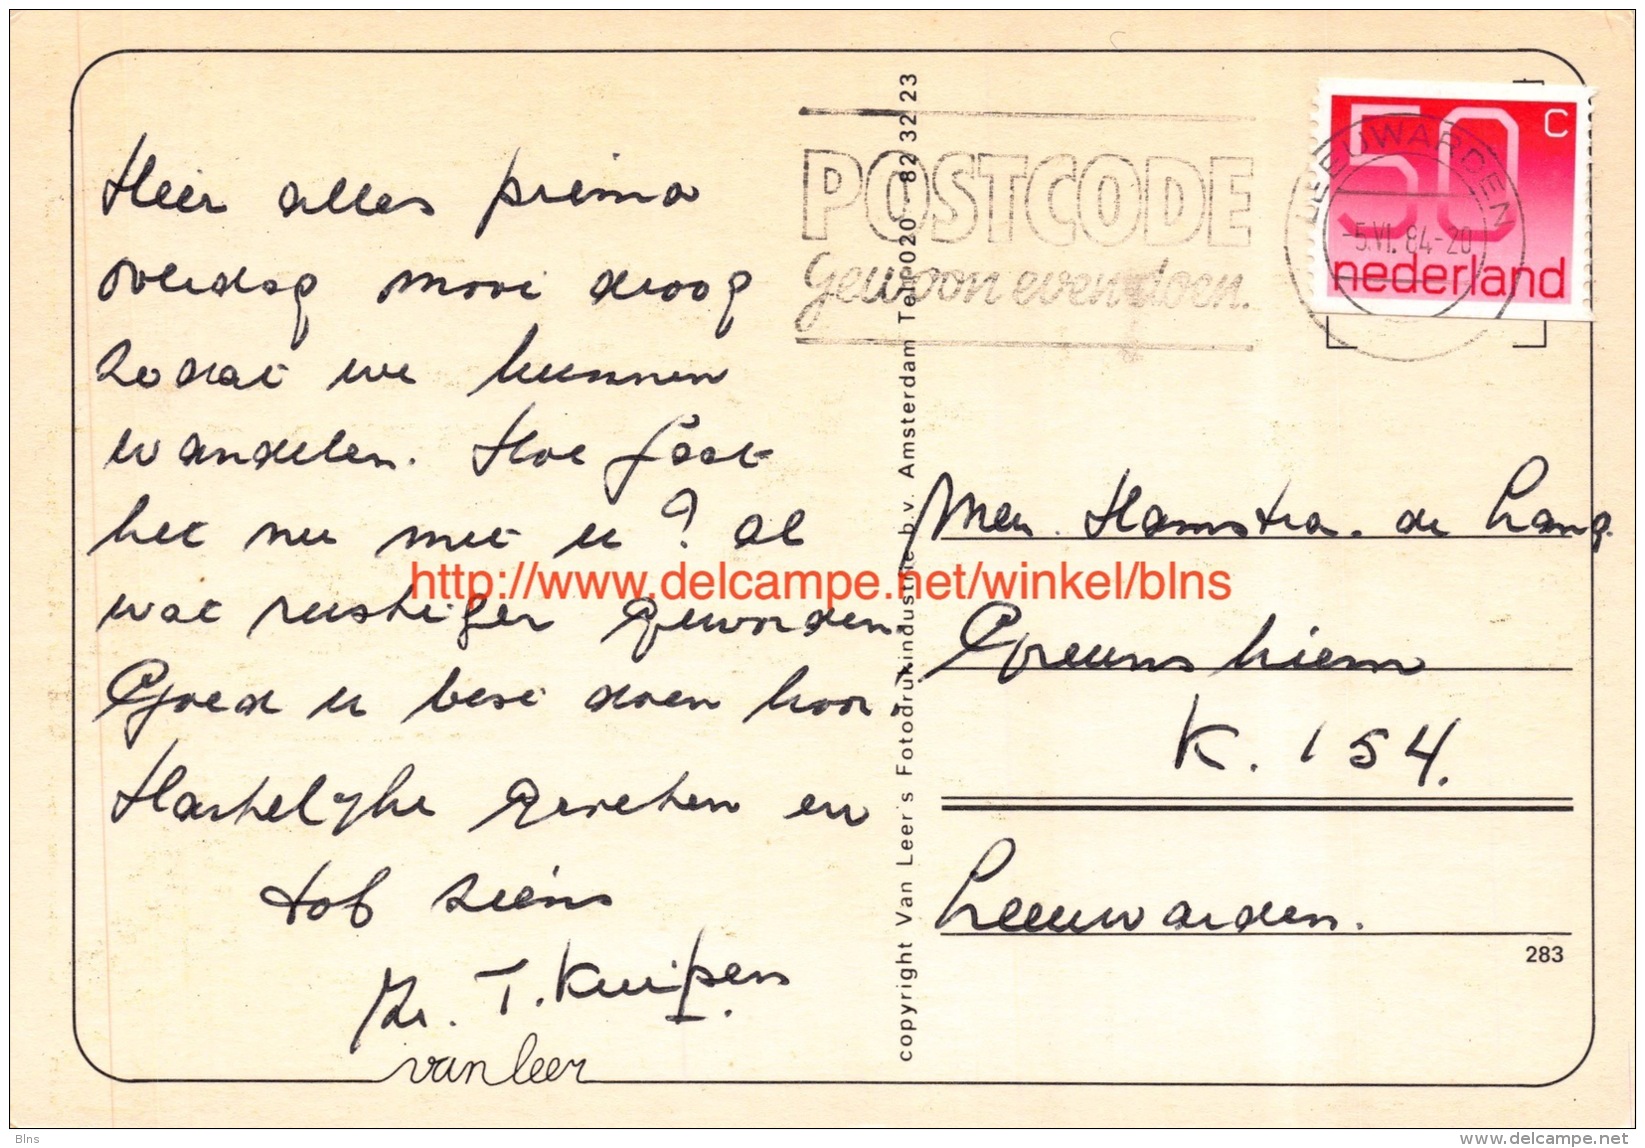 Hier alles prima
overdag mooi droog
zodat we kunnen
wandelen. Hoe gaat
het nu met u? al
wat rustiger geworden.
Goed u best doen hoor.
Hartelijke groeten en
tot ziens
T. Kuipers.
van leer
copyright Van Leer's Fotodrukindustrie b.v. Amsterdam Tel. 020 - 82 32 23
POSTCODE
gewoon even doen.
LEEUWARDEN
-5.VI.84-20
50 C
nederland
Mev. Hamstra. de Lang.
Greunshiem
K. 154.
Leeuwarden.
283
http://www.delcampe.net/winkel/blns
Blns
www.delcampe.net